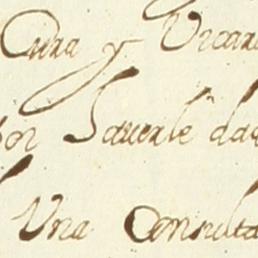 Cura y Vicar
por Haverle da
Una Consulta